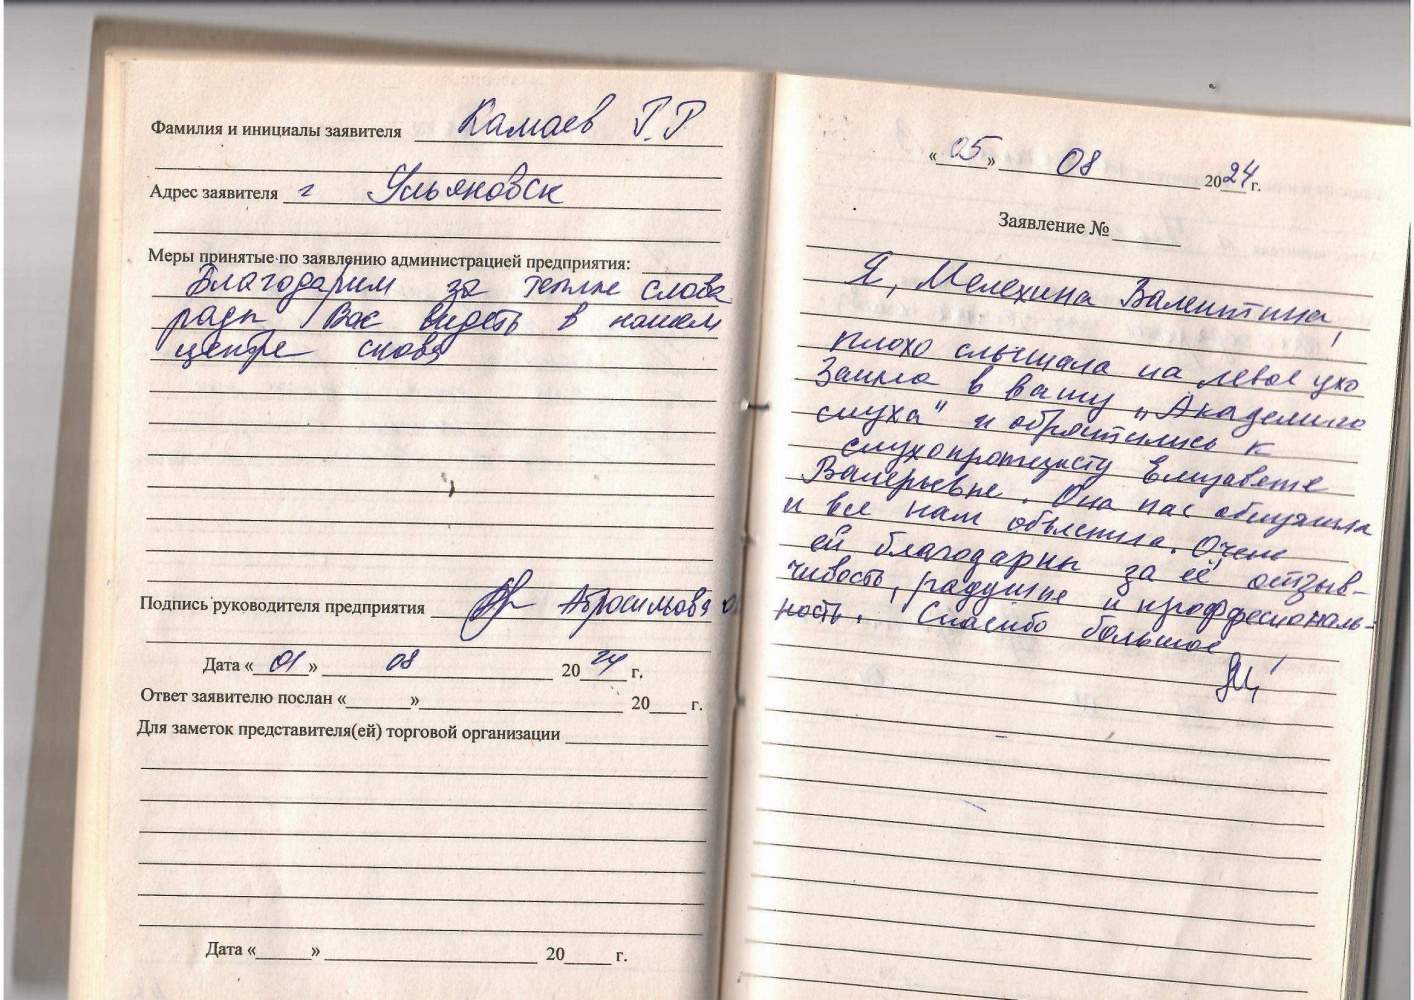 Фамилия и инициалы заявителя Камаев Г.Р
Адрес заявителя г Ульяновск
Меры принятые по заявлению администрацией предприятия:
Благодарим за теплые слова
рады Вас видеть в нашем
центре снова
Подпись руководителя предприятия Абросимова
Дата « 01 » 08 2024 г.
Ответ заявителю послан « » 20 г.
Для заметок представителя(ей) торговой организации
Дата « » 20 г.
« 05 » 08 2024 г.
Заявление №
Я, Мелехина Валентина,
плохо слышала на левое ухо
Зашла в вашу „Академию
слуха" и обратились к
слухопротезисту Елизавете
Валерьевне. Она нас обслужила
и все нам объяснила. Очень
ей благодарны за её отзыв-
чивость, радушие и проффесиональ-
ность. Спасибо большое